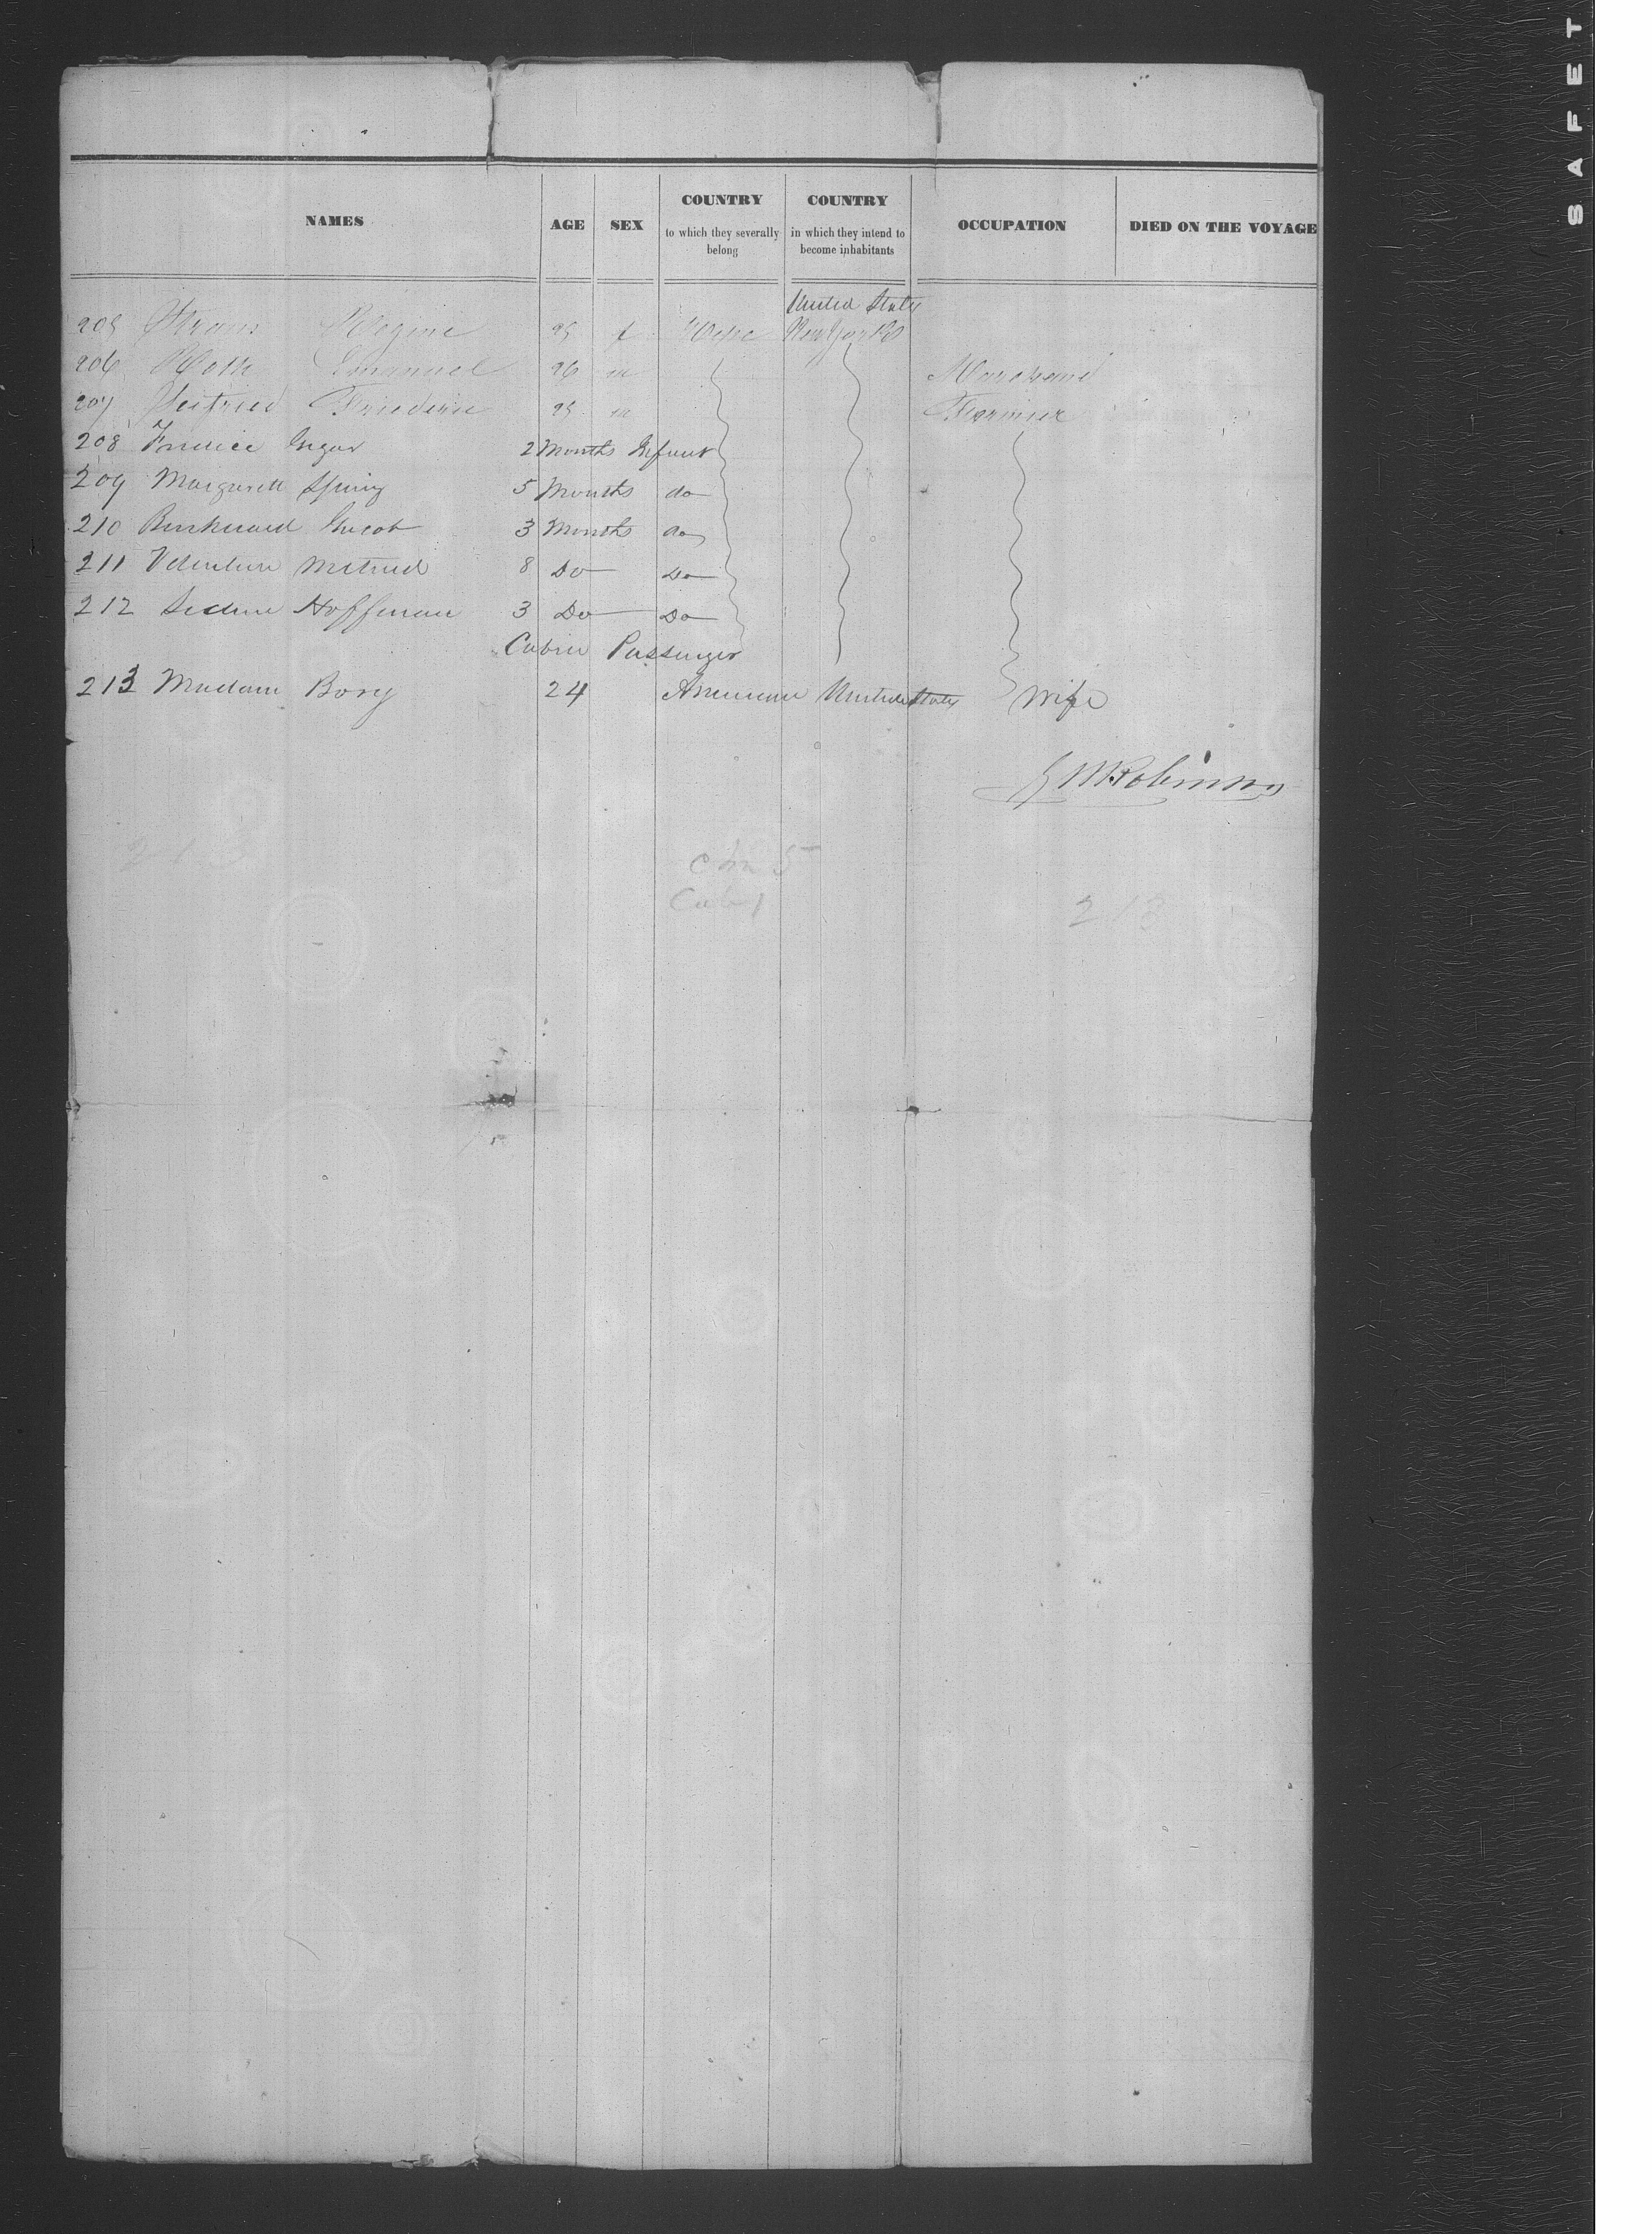 NAMES AGE SEX COUNTRY to which they severally belong COUNTRY in which they intend to become inhabitants OCCUPATION DIED ON THE VOYAGE
United States
205 Straus Regine 25 f Hesse New York
206 Roth Emanuel 26 m Marchand
207 Seifried Friederic 25 m Farmer
208 2 Months Infant
209 Margarett Spring 5 Months do
210 Jacob 3 Months do
211 8 Do Do
212 Hoffman 3 Do Do
Cabin Passenger
213 Madam Bory 24 American United States Wife
Robinson
213
5
Cab 1
213
SAFET